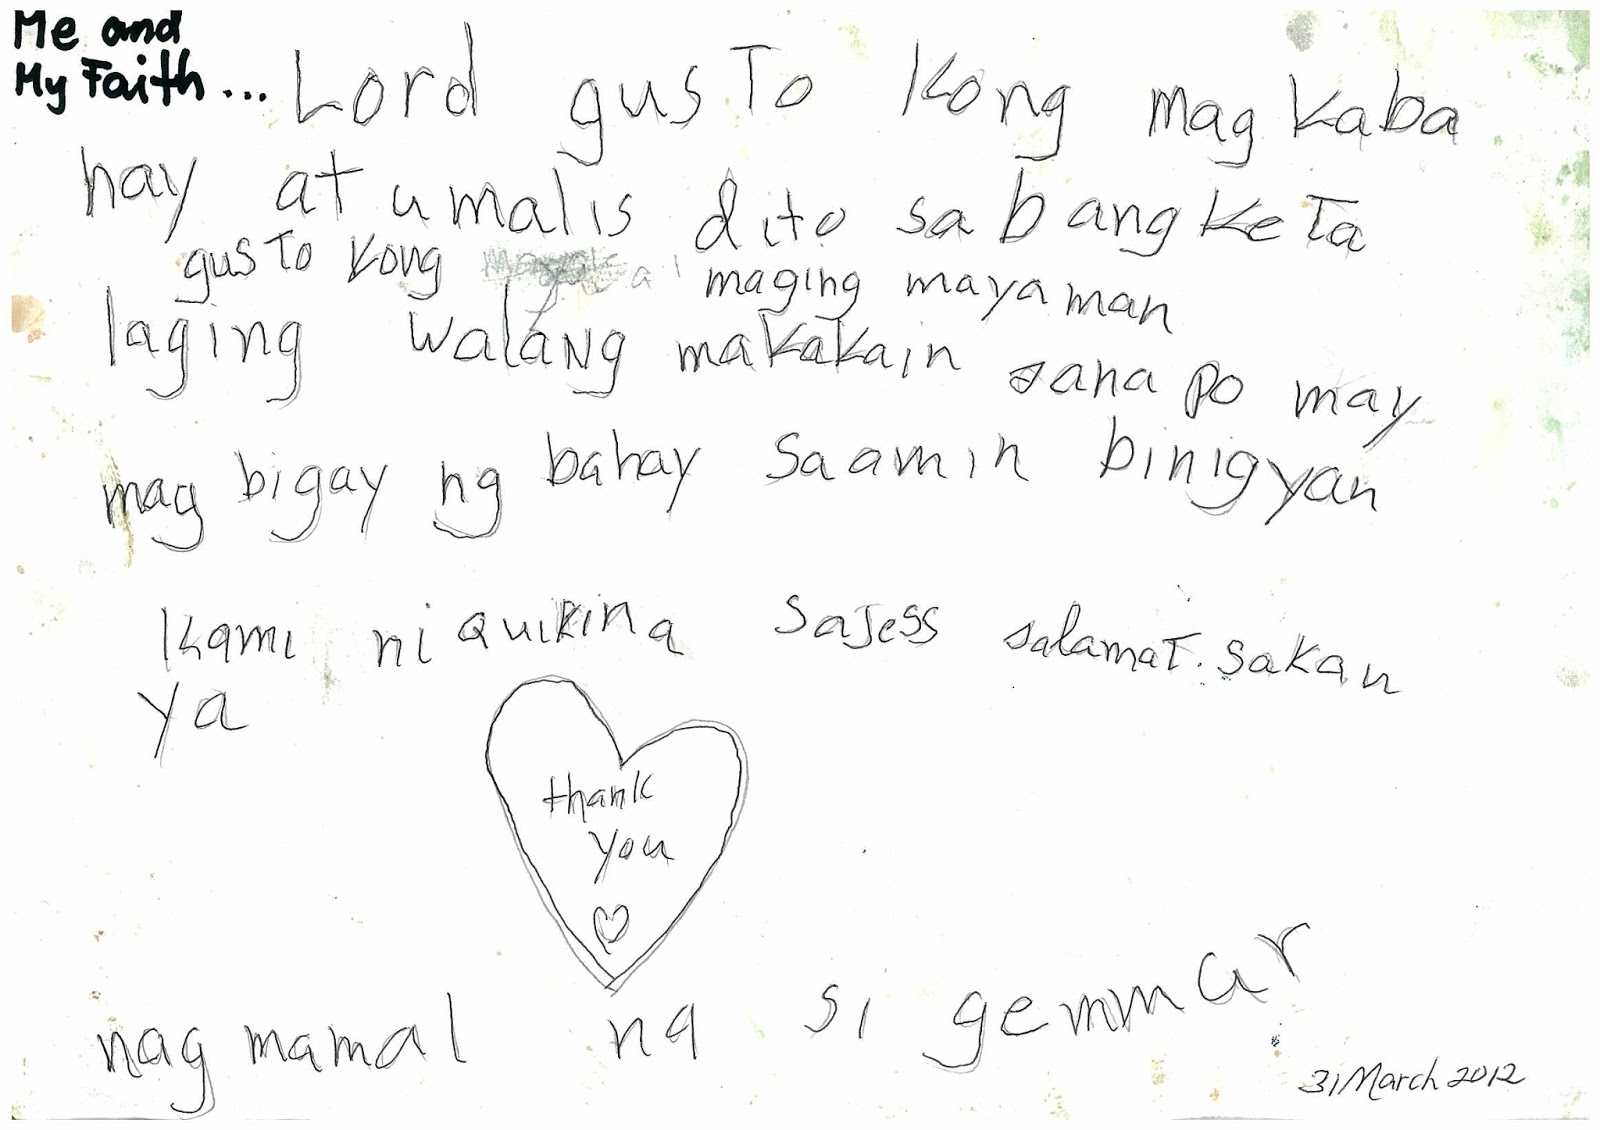 Me and
My Faith... Lord gusto kong magkaba
hay at umalis dito sa bangketa
gusto kong maging mayaman
laging walang makakain sana po may
mag bigay ng bahay saamin binigyan
kami ni quikina sajess salamat. sakan
ya
thank
you
nag mamal nq si gemmar
31 March 2012